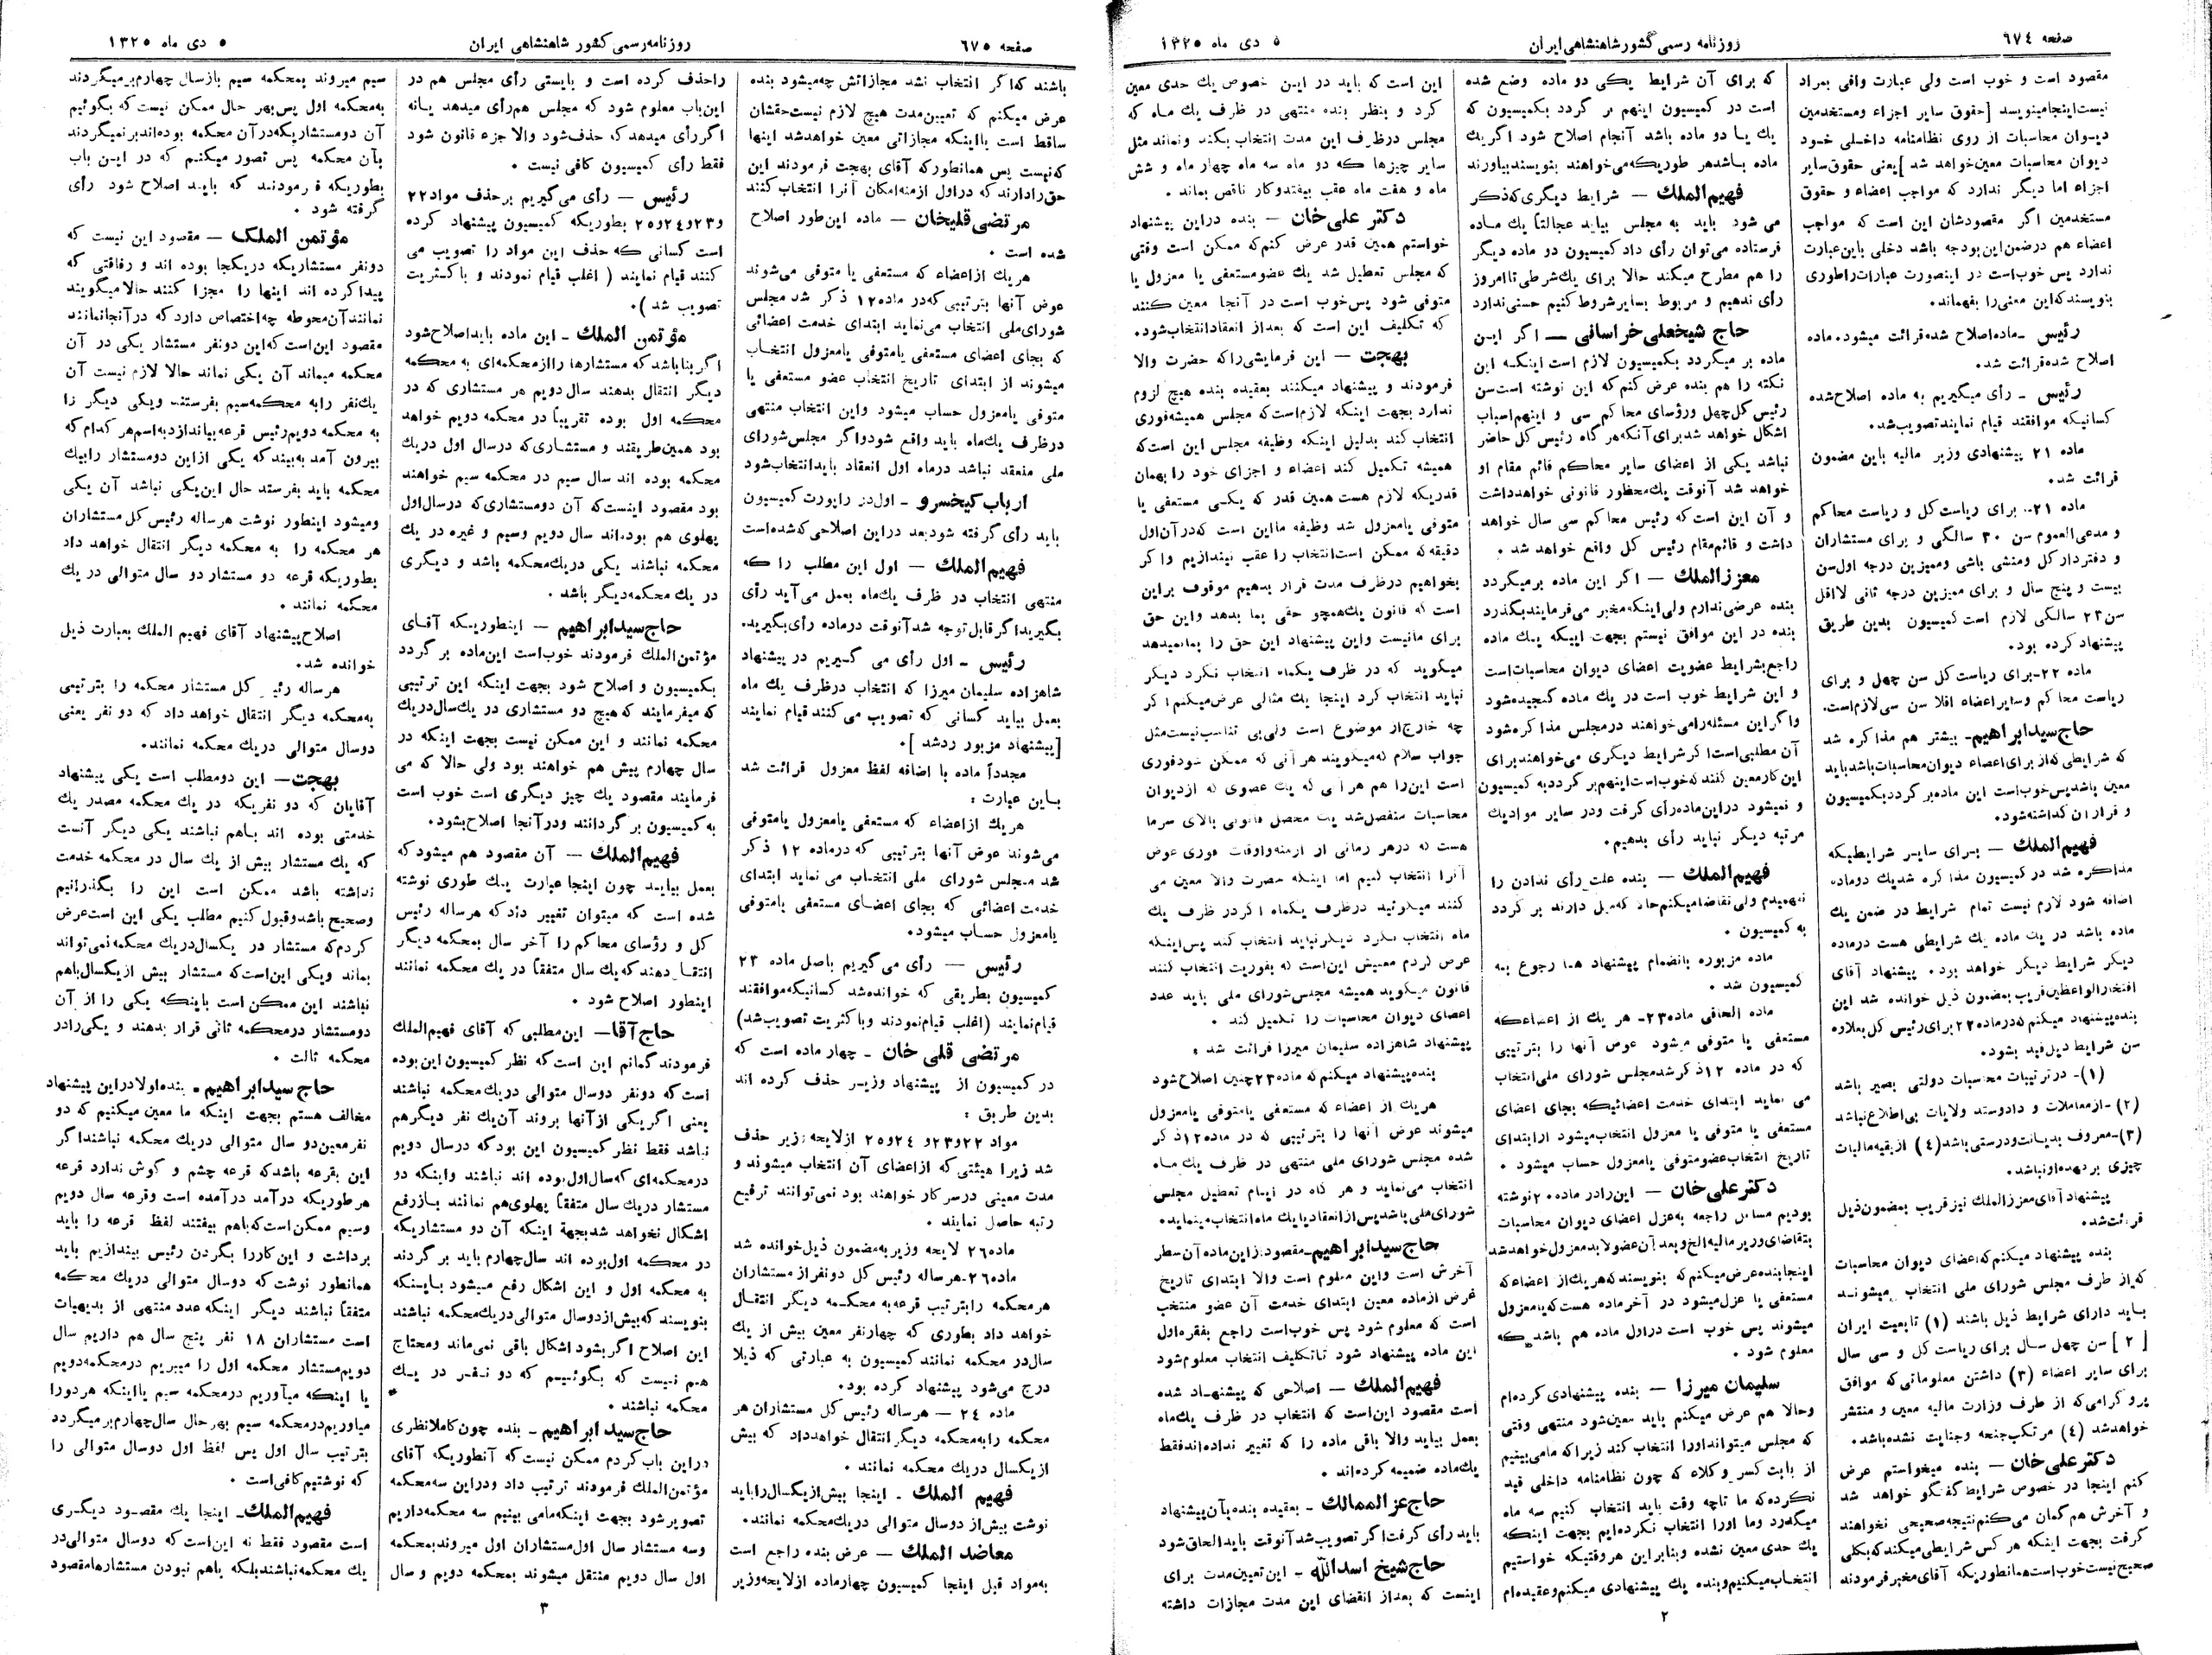 صفحه ۶۷۴
روزنامه رسمی کشور شاهنشاهی ایران
۵ دی ماه ۱۳۲۵
مقصود است و خوب است ولی عبارت وافی بمراد
نیست اینجا مینویسد [حقوق سایر اجزاء ومستخدمین
دیوان محاسبات از روی نظامنامه داخلی خود
دیوان محاسبات معین خواهد شد ] یعنی حقوق سایر
اجزاء اما دیگر ندارد که مواجب اعضاء و حقوق
مستخدمین اگر مقصودشان این است که مواجب
اعضاء هم در ضمن این بودجه باشد دخلی باین عبارت
ندارد پس خوب است در اینصورت عبارات را طوری
بنویسند که این معنی را بفهماند.
رئیس ـ ماده اصلاح شده قرائت میشود. ماده
اصلاح شده قرائت شد.
رئیس ـ رأی میگیریم به ماده اصلاح شده
کسانیکه موافقند قیام نمایند تصویب شد.
ماده ۲۱ پیشنهادی وزیر مالیه باین مضمون
قرائت شد.
ماده ۲۱ـ برای ریاست کل و ریاست محاکم
و مدعی العموم سن ۳۰ سالگی و برای مستشاران
و دفتردار کل ومنشی باشی وممیزین درجه اول سن
بیست و پنج سال و برای ممیزین درجه ثانی لااقل
سن ۲۳ سالگی لازم است کمیسیون بدین طریق
پیشنهاد کرده بود.
ماده ۲۲ـ برای ریاست کل سن چهل و برای
ریاست محاکم وسایر اعضاء اقلا سن سی لازم است.
حاج سید ابراهیم ـ بیشتر هم مذاکره شد
که شرایطی که از برای اعضاء دیوان محاسبات باشد باید
معین باشد پس خوب است این ماده بر گردد بکمیسیون
و قرار آن گذاشته شود.
فهیم الملک — برای سایر شرایطیکه
مذاکره شد در کمیسیون مذاکره شد یك دوماده
اضافه شود لازم نیست تمام شرایط در ضمن یك
ماده باشد در یك ماده یك شرایطی هست درماده
دیگر شرایط دیگر خواهد بود. پیشنهاد آقای
افتخار الواعظین قریب بمضمون ذیل خوانده شد این
بنده پیشنهاد میکنم که در ماده ۲۲ برای رئیس کل بعلاوه
سن شرایط ذیل قید بشود.
(۱)ـ در ترتیبات محاسبات دولتی بصیر باشد
(۲)ـ از معاملات و دادوستد ولایات بی اطلاع نباشد
(۳)ـ معروف بدیانت ودرستی باشد (٤) از بقیه مالیات
چیزی بر عهده او نباشد.
پیشنهاد آقای معزز الملك نیز قریب بمضمون ذیل
قرائت شد.
بنده پیشنهاد میکنم که اعضای دیوان محاسبات
که از طرف مجلس شورای ملی انتخاب میشوند
باید دارای شرایط ذیل باشند (۱) تابعیت ایران
[ ۲ ] سن چهل سال برای ریاست کل و سی سال
برای سایر اعضاء (۳) داشتن معلوماتی که موافق
پروگرامی که از طرف وزارت مالیه معین و منتشر
خواهد شد (٤) مرتکب جنحه وجنایت نشده باشد.
دکتر علی خان — بنده میخواستم عرض
کنم اینجا در خصوص شرایط گفتگو خواهد شد
و آخرش هم گمان می کنم نتیجه صحیحی نخواهند
گرفت بجهت اینکه هر کس شرایطی میکند که بکلی
صحیح نیست خوب است همانطوریکه آقای مخبر فرمودند
که برای آن شرایط یکی دو ماده وضع شده
است در کمیسیون اینهم بر گردد بکمیسیون که
یك یا دو ماده باشد آنجام اصلاح شود اگر یك
ماده باشد هر طوریکه می خواهند بنویسند بیاورند
فهیم الملك — شرایط دیگری که ذکر
می شود باید به مجلس بیاید عجالتاً یك ماده
فرستاده می توان رأی داد کمیسیون دو ماده دیگر
را هم مطرح میکند حالا برای یك شرطی تا امروز
رأی ندهیم و مربوط بسایر شروط کنیم حسنی ندارد
حاج شیخعلی خراسانی — اگر این
ماده بر میگردد بکمیسیون لازم است اینکه این
نکته را هم بنده عرض کنم که این نوشته است سن
رئیس کل چهل ورؤسای محاکم سی و اینهم اسباب
اشکال خواهد شد برای آنکه هر گاه رئیس کل حاضر
نباشد یکی از اعضای سایر محاکم قائم مقام او
خواهد شد آنوقت یك محظور قانونی خواهد داشت
و آن این است که رئیس محاکم سی سال خواهد
داشت و قائم مقام رئیس کل واقع خواهد شد .
معزز الملك — اگر این ماده بر میگردد
بنده عرضی ندارم ولی اینکه مخبر می فرمایند بگذرد
بنده در این موافق نیستم بجهت اینکه یك ماده
راجع بشرایط عضویت اعضای دیوان محاسبات است
و این شرایط خوب است در یك ماده گنجیده شود
واگر این مسئله را می خواهند در مجلس مذاکره شود
آن مطلبی است اگر شرایط دیگری می خواهند برای
این کار معین کنند که خوب است اینهم بر گردد به کمیسیون
و نمیشود در این ماده رأی گرفت ودر سایر مواد یك
مرتبه دیگر نباید رأی بدهیم.
فهیم الملك — بنده علت رأی ندادن را
نفهمیدم ولی تقاضا میکنم حال که میل دارند بر گردد
به کمیسیون .
ماده مزبوره بانضمام پیشنهاد ها رجوع به
کمیسیون شد .
ماده الحاقی ماده ۲۳ـ هر یك از اعضاء که
مستعفی یا متوفی میشود عوض آنها را بترتیبی
که در ماده ۱۲ ذکر شد مجلس شورای ملی انتخاب
می نماید ابتدای خدمت اعضائیکه بجای اعضای
مستعفی یا متوفی یا معزول انتخاب میشود از ابتدای
تاریخ انتخاب عضو متوفی یا معزول حساب میشود .
دکتر علی خان — این را در ماده ۲۰ نوشته
بودیم مسائل راجعه به عزل اعضای دیوان محاسبات
بتقاضای وزیر مالیه الخ و بعد آن عضو لابد معزول خواهد شد
اینجا بنده عرض میکنم که بنویسند که هر یك از اعضاء که
مستعفی یا عزل میشود در آخر ماده هست که یا معزول
میشوند پس خوب است در اول ماده هم باشد که
معلوم شود .
سلیمان میرزا — بنده پیشنهادی کرده ام
وحالا هم عرض میکنم باید معین شود منتهی وقتی
که مجلس میتواند او را انتخاب کند زیرا که ما می بینیم
از بابت کسر وکلاء که چون نظامنامه داخلی قید
نکرده که ما تا چه وقت باید انتخاب کنیم سه ماه
میگذرد وما او را انتخاب نکرده ایم بجهت اینکه
یك حدی معین نشده وبنابر این هر وقتیکه خواستیم
انتخاب میکنیم و بنده یك پیشنهادی میکنم وعقیده ام
این است که باید در این خصوص یك حدی معین
کرد و بنظر بنده منتهی در ظرف یك ماه که
مجلس در ظرف این مدت انتخاب بکند و نماند مثل
سایر چیزها که دو ماه سه ماه چهار ماه و شش
ماه و هفت ماه عقب بیفتد و کار ناقص بماند .
دکتر علی خان — بنده در این پیشنهاد
خواستم همین قدر عرض کنم که ممکن است وقتی
که مجلس تعطیل شد یك عضو مستعفی یا معزول یا
متوفی شود پس خوب است در آنجا معین کنند
که تکلیف این است که بعد از انعقاد انتخاب شود.
بهجت — این فرمایشی را که حضرت والا
فرمودند و پیشنهاد میکنند بعقیده بنده هیچ لزوم
ندارد بجهت اینکه لازم است که مجلس همیشه فوری
انتخاب کند بدلیل اینکه وظیفه مجلس این است که
همیشه تکمیل کند اعضاء و اجزای خود را بهمان
قدریکه لازم هست همین قدر که یکی مستعفی یا
متوفی یا معزول شد وظیفه ما این است که در آن اول
دقیقه که ممکن است انتخاب را عقب نیندازیم واگر
بخواهیم در ظرف مدت قرار بدهیم موقوف بر این
است که قانون یك همچو حقی بما بدهد واین حق
برای ما نیست واین پیشنهاد این حق را بما نمیدهد
میگوید که در ظرف یکماه انتخاب نکرد دیگر
نباید انتخاب کرد اینجا یك مثالی عرض میکنم اگر
چه خارج از موضوع است ولی بی تناسب نیست مثل
جواب سلام که میگویند هر آنی که ممکن شود فوری
است این را هم هر آنی که یك عضوی که از دیوان
محاسبات منفصل شد یك محصل قانونی بالای سر ما
هست که در هر زمانی از ازمنه و اوقات فوری عوض
آنرا انتخاب کنیم اما اینکه حضرت والا معین می
کنند میگوئید در ظرف یکماه اگر در ظرف یك
ماه انتخاب نکرد دیگر نباید انتخاب کند پس اینکه
عرض کردم معنیش این است که بفوریت انتخاب کنند
قانون میگوید همیشه مجلس شورای ملی باید عدد
اعضای دیوان محاسبات را تکمیل کند .
پیشنهاد شاهزاده سلیمان میرزا قرائت شد :
بنده پیشنهاد میکنم که ماده ۲۳ چنین اصلاح شود
هر یك از اعضاء که مستعفی یا متوفی یا معزول
میشوند عوض آنها را بترتیبی که در ماده ۱۲ ذکر
شده مجلس شورای ملی منتهی در ظرف یك ماه
انتخاب می نماید و هر گاه در ایام تعطیل مجلس
شورای ملی باشد پس از انعقاد تا یك ماه انتخاب مینماید.
حاج سید ابراهیم ـ مقصود از این ماده آن سطر
آخرش است واین معلوم است والا ابتدای تاریخ
غرض از ماده معین ابتدای خدمت آن عضو منتخب
است که معلوم شود پس خوب است راجع بفقره اول
این ماده پیشنهاد شود تا تکلیف انتخاب معلوم شود
فهیم الملك — اصلاحی که پیشنهاد شده
است مقصود این است که انتخاب در ظرف یك ماه
بعمل بیاید والا باقی ماده را که تغییر نداده اند فقط
یك ماده ضمیمه کرده اند .
حاج عز الممالك ـ بعقیده بنده بآن پیشنهاد
باید رأی گرفت اگر تصویب شد آنوقت باید الحاق شود
حاج شیخ اسدالله ـ این تعیین مدت برای
اینست که بعد از انقضای این مدت مجازات داشته
۲
صفحه ۶۷۵
روزنامه رسمی کشور شاهنشاهی ایران
۵ دی ماه ۱۳۲۵
باشند که اگر انتخاب نشد مجازاتش چه میشود بنده
عرض میکنم که تعیین مدت هیچ لازم نیست حقشان
ساقط است یا اینکه مجازاتی معین خواهد شد اینها
که نیست پس همانطور که آقای بهجت فرمودند این
حق را دارند که در اول ازمنه امکان آنرا انتخاب کنند
مرتضی قلیخان — ماده این طور اصلاح
شده است .
هر یك از اعضاء که مستعفی یا متوفی می شوند
عوض آنها بترتیبی که در ماده ۱۲ ذکر شد مجلس
شورای ملی انتخاب می نماید ابتدای خدمت اعضائی
که بجای اعضای مستعفی یا متوفی یا معزول انتخاب
میشوند از ابتدای تاریخ انتخاب عضو مستعفی یا
متوفی یا معزول حساب میشود واین انتخاب منتهی
در ظرف یك ماه باید واقع شود واگر مجلس شورای
ملی منعقد نباشد در ماه اول انعقاد باید انتخاب شود
ارباب کیخسرو ـ اول در راپورت کمیسیون
باید رأی گرفته شود بعد در این اصلاحی که شده است
فهیم الملك — اول این مطلب را که
منتهی انتخاب در ظرف یك ماه بعمل می آید رأی
بگیرید اگر قابل توجه شد آنوقت در ماده رأی بگیرید.
رئیس ـ اول رأی می گیریم در پیشنهاد
شاهزاده سلیمان میرزا که انتخاب در ظرف یك ماه
بعمل بیاید کسانی که تصویب می کنند قیام نمایند
[پیشنهاد مزبور رد شد ].
مجدداً ماده با اضافه لفظ معزول قرائت شد
باین عبارت :
هر یك از اعضاء که مستعفی یا معزول یا متوفی
می شوند عوض آنها بترتیبی که در ماده ۱۲ ذکر
شد مجلس شورای ملی انتخاب می نماید ابتدای
خدمت اعضائی که بجای اعضای مستعفی یا متوفی
یا معزول حساب میشود.
رئیس — رأی می گیریم باصل ماده ۲۳
کمیسیون بطریقی که خوانده شد کسانیکه موافقند
قیام نمایند (اغلب قیام نمودند وبا کثریت تصویب شد)
مرتضی قلی خان ـ چهار ماده است که
در کمیسیون از پیشنهاد وزیر حذف کرده اند
بدین طریق :
مواد ۲۲ و ۲۳ و ۲٤ و ۲۵ از لایحه وزیر حذف
شد زیرا هیئتی که از اعضای آن انتخاب میشوند و
مدت معینی در سر کار خواهند بود نمی توانند ترفیع
رتبه حاصل نمایند .
ماده ۲۶ لایحه وزیر به مضمون ذیل خوانده شد
ماده ۲۶ـ هر ساله رئیس کل دو نفر از مستشاران
هر محکمه را بترتیب قرعه به محکمه دیگر انتقال
خواهد داد بطوری که چهار نفر معین بیش از یك
سال در محکمه نمانند کمیسیون به عبارتی که ذیلا
درج می شود پیشنهاد کرده بود.
ماده ۲٤ — هر ساله رئیس کل مستشاران هر
محکمه را به محکمه دیگر انتقال خواهد داد که بیش
از یکسال در یك محکمه نمانند .
فهیم الملك ـ اینجا بیش از یکسال را باید
نوشت بیش از دو سال متوالی در یك محکمه نمانند.
معاضد الملك — عرض بنده راجع است
به مواد قبل اینجا کمیسیون چهار ماده از لایحه وزیر
را حذف کرده است و بایستی رأی مجلس هم در
این باب معلوم شود که مجلس هم رأی میدهد یا نه
اگر رأی میدهد که حذف شود والا جزء قانون شود
فقط رأی کمیسیون کافی نیست .
رئیس — رأی می گیریم بر حذف مواد ۲۲
و ۲۳ و ۲٤ و ۲۵ بطوریکه کمیسیون پیشنهاد کرده
است کسانی که حذف این مواد را تصویب می
کنند قیام نمایند ( اغلب قیام نمودند و با کثریت
تصویب شد ).
مؤتمن الملك ـ این ماده باید اصلاح شود
اگر بنا باشد که مستشارها را از محکمه ای به محکمه
دیگر انتقال بدهند سال دویم هر مستشاری که در
محکمه اول بوده تقریباً در محکمه دویم خواهد
بود همین طریقند و مستشاری که در سال اول در یك
محکمه بوده اند سال سیم در محکمه سیم خواهند
بود مقصود اینست که آن دو مستشاری که در سال اول
پهلوی هم بوده اند سال دویم وسیم و غیره در یك
محکمه نباشند یکی در یك محکمه باشد و دیگری
در یك محکمه دیگر باشد .
حاج سید ابراهیم — اینطوریکه آقای
مؤتمن الملك فرمودند خوب است این ماده بر گردد
بکمیسیون و اصلاح شود بجهت اینکه این ترتیبی
که میفرمایند که هیچ دو مستشاری در یك سال در یك
محکمه نمانند و این ممکن نیست بجهت اینکه در
سال چهارم پیش هم خواهند بود ولی حالا که می
فرمایند مقصود یك چیز دیگری است خوب است
به کمیسیون بر گردانند ودر آنجا اصلاح بشود.
فهیم الملك — آن مقصود هم میشود که
بعمل بیاید چون اینجا عبارت یك طوری نوشته
شده است که میتوان تغییر داد که هر ساله رئیس
کل و رؤسای محاکم را آخر سال بمحکمه دیگر
انتقال دهند که یك سال متفقاً در یك محکمه نمانند
اینطور اصلاح شود .
حاج آقا — این مطلبی که آقای فهیم الملك
فرمودند گمانم این است که نظر کمیسیون این بوده
است که دونفر دوسال متوالی در یك محکمه نباشند
یعنی اگر یکی از آنها بروند آن یك نفر دیگر هم
نباشد فقط نظر کمیسیون این بود که در سال دویم
در محکمه ای که سال اول بوده اند نباشند واینکه دو
مستشار در یك سال متفقاً پهلوی هم نمانند باز رفع
اشکال نخواهد شد بجهة اینکه آن دو مستشاریکه
در محکمه اول بوده اند سال چهارم باید بر گردند
به محکمه اول و این اشکال رفع میشود باینکه
بنویسند که بیش از دو سال متوالی در یك محکمه نباشند
این اصلاح اگر بشود اشکال باقی نمی ماند ومحتاج
هم نیست که بگوئیم که دو نفر در یك
محکمه نباشند .
حاج سید ابراهیم ـ بنده چون کاملا نظری
در این باب کردم ممکن نیست که آنطوریکه آقای
مؤتمن الملك فرمودند ترتیب داد ودر این سه محکمه
تصویر شود بجهت اینکه ما می بینیم سه محکمه داریم
وسه مستشار سال اول مستشاران اول میروند بمحکمه
اول سال دویم منتقل میشوند بمحکمه دویم و سال
سیم میروند بمحکمه سیم باز سال چهارم بر میگردند
به محکمه اول پس بهر حال ممکن نیست که بگوئیم
آن دو مستشاریکه در آن محکمه بوده اند بر نمیگردند
بآن محکمه پس تصور میکنم که در این باب
بطوریکه فرمودند که باید اصلاح شود رأی
گرفته شود .
مؤتمن الملك — مقصود این نیست که
دونفر مستشاریکه در یکجا بوده اند و رفاقتی که
پیدا کرده اند اینها را مجزا کنند حالا میگویند
نمانند آن محوطه چه اختصاص دارد که در آنجا نمانند
مقصود این است که این دو نفر مستشار یکی در آن
محکمه میماند آن یکی نماند حالا لازم نیست آن
یك نفر را به محکمه سیم بفرستند ویکی دیگر را
به محکمه دویم رئیس قرعه بیاندازد به اسم هر کدام که
بیرون آمد به بیند که یکی از این دو مستشار را بیك
محکمه باید بفرستد حال این یکی نباشد آن یکی
ومیشود اینطور نوشت هر ساله رئیس کل مستشاران
هر محکمه را به محکمه دیگر انتقال خواهد داد
بطوریکه قرعه دو مستشار دو سال متوالی در یك
محکمه نمانند .
اصلاح پیشنهاد آقای فهیم الملك بعبارت ذیل
خوانده شد.
هر ساله رئیس کل مستشار محکمه را بترتیبی
به محکمه دیگر انتقال خواهد داد که دو نفر یعنی
دوسال متوالی در یك محکمه نمانند.
بهجت — این دو مطلب است یکی پیشنهاد
آقایان که دو نفریکه در یك محکمه مصدر یك
خدمتی بوده اند باهم نباشند یکی دیگر آنست
که یك مستشار بیش از یك سال در محکمه خدمت
نداشته باشد ممکن است این را بگذرانیم
وصحیح باشد و قبول کنیم مطلب یکی این است عرض
کردم که مستشار در یکسال در یك محکمه نمی تواند
بماند ویکی این است که مستشار بیش از یکسال باهم
نباشند این ممکن است باینکه یکی را از آن
دومستشار در محکمه ثانی قرار بدهند و یکی را در
محکمه ثالث .
حاج سید ابراهیم ـ بنده اولا در این پیشنهاد
مخالف هستم بجهت اینکه ما معین میکنیم که دو
نفر معین دو سال متوالی در یك محکمه نباشند اگر
این بقرعه باشد که قرعه چشم و گوش ندارد قرعه
هر طوریکه در آمد در آمده است وقرعه سال دویم
وسیم ممکن است که باهم بیفتند لفظ قرعه را باید
برداشت و این کار را بگردن رئیس بیندازیم باید
همانطور نوشت که دوسال متوالی در یك محکمه
متفقاً نباشند دیگر اینکه عدد منتهی از بدیهیات
است مستشاران ۱۸ نفر پنج سال هم داریم سال
دویم مستشار محکمه اول را میبریم در محکمه دویم
یا اینکه میآوریم در محکمه سیم یا اینکه هر دو را
میاوریم در محکمه سیم بهر حال سال چهارم بر میگردد
بترتیب سال اول پس لفظ اول دوسال متوالی را
که نوشتیم کافی است .
فهیم الملك ـ اینجا یك مقصود دیگری
است مقصود فقط نه این است که دوسال متوالی در
یك محکمه نباشند بلکه باهم نبودن مستشارها مقصود
۳